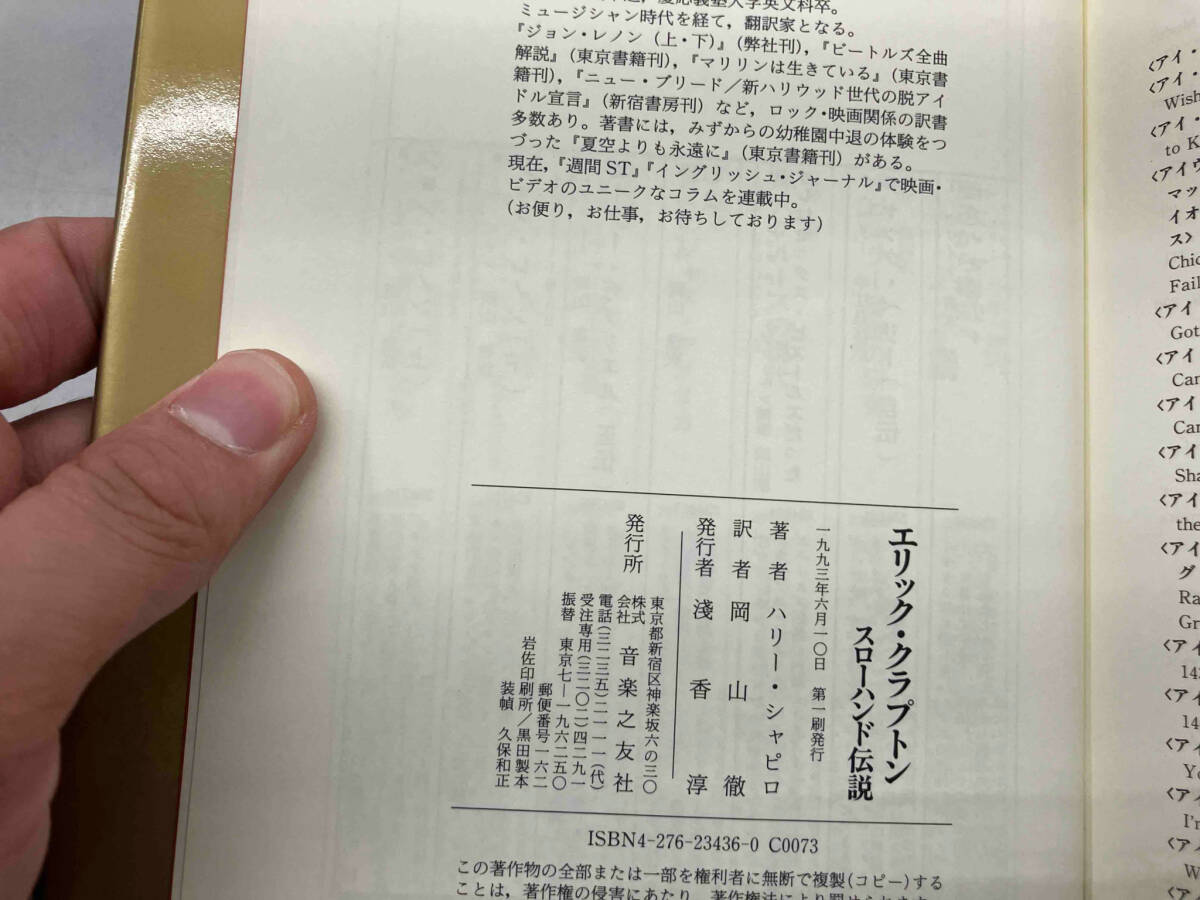 慶応義塾大学英文科卒。
ミュージシャン時代を経て，翻訳家となる。
『ジョン・レノン（上・下）』（弊社刊），『ビートルズ全曲
解説』（東京書籍刊），『マリリンは生きている』（東京書
籍刊），『ニュー・ブリード／新ハリウッド世代の脱アイ
ドル宣言』（新宿書房刊）など，ロック・映画関係の訳書
多数あり。著書には，みずからの幼稚園中退の体験をつ
づった『夏空よりも永遠に』（東京書籍刊）がある。
現在，『週間ST』『イングリッシュ・ジャーナル』で映画・
ビデオのユニークなコラムを連載中。
（お便り，お仕事，お待ちしております）
エリック・クラプトン
スローハンド伝説
一九九三年六月一〇日　第一刷発行
著者　ハリー・シャピロ
訳者　岡山徹
発行者　淺香淳
発行所　株式会社　音楽之友社
東京都新宿区神楽坂六の三〇
電話（三二三五）二一一一（代）
受注専用（三二〇二）四二九一
振替　東京七―一九六二五〇
郵便番号一六二
岩佐印刷所／黒田製本
装幀　久保和正
ISBN4-276-23436-0 C0073
この著作物の全部または一部を権利者に無断で複製（コピー）する
ことは，著作権の侵害にあたり，著作権法により罰せられます。
〈アイ・
〈アイ・
Wish
〈アイ・
to K
〈アイウ
マッ
イオ
ス〉
Chic
Fail
〈アイ
Got
〈アイ
Can
〈アイ
Car
〈アイ
Sha
〈アイ
the
〈アイ
グ
Ra
Gr
〈アイ
14
〈アイ
14
〈アイ
Yo
〈アイ
I'm
〈アイ
W
〈ア